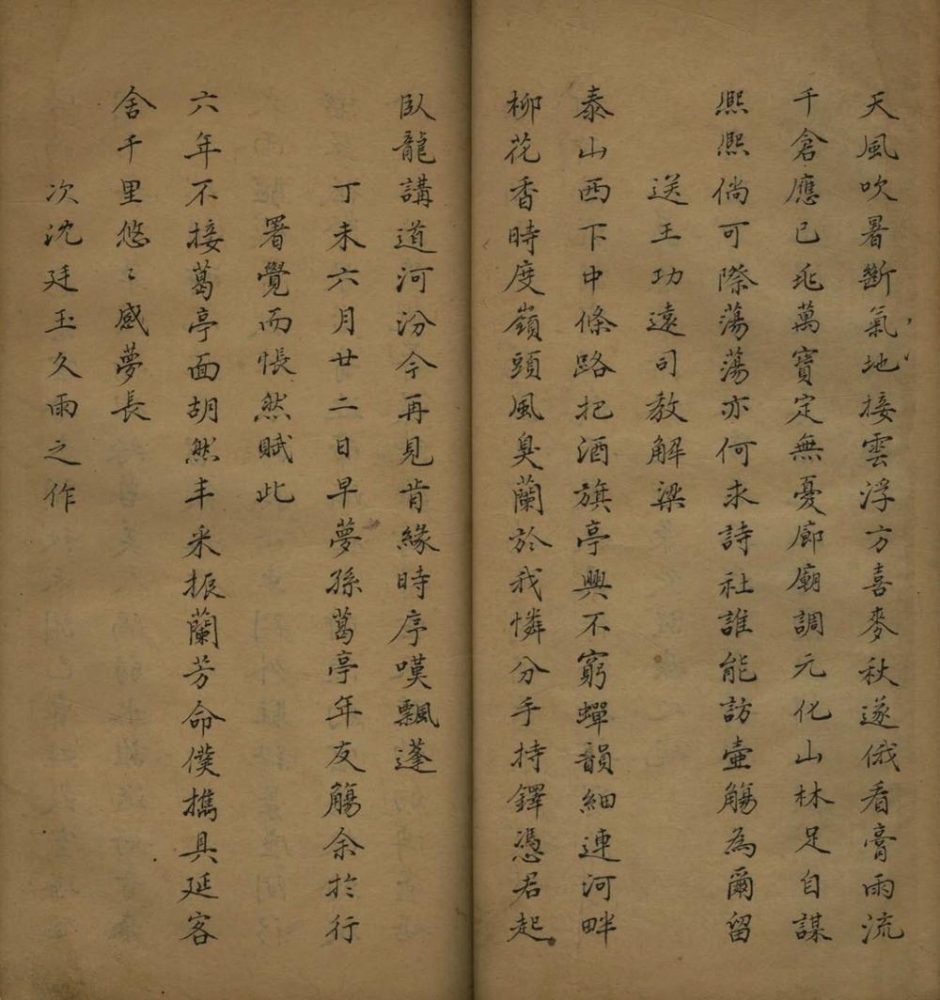 天風吹暑斷氣地接雲浮方喜麥秋遂俄看膏雨流
千倉應已兆萬寶定無憂廊廟調元化山林足自謀
熙熙倘可際蕩蕩亦何求詩社誰能訪壷觴為爾留
送王功遠司教解梁
泰山西下中條路把酒旗亭興不窮蟬韻細連河畔
柳花香時度嶺頭風臭蘭於我憐分手持鐸憑君起
臥龍講道河汾今再見肯緣時序嘆飄蓬
丁未六月廿二日早夢孫葛亭年友觴余於行
署覺而悵然賦此
六年不接葛亭面胡然丰采振蘭芳命僕擕具延客
舍千里悠〻感夢長
次沈廷玉久雨之作